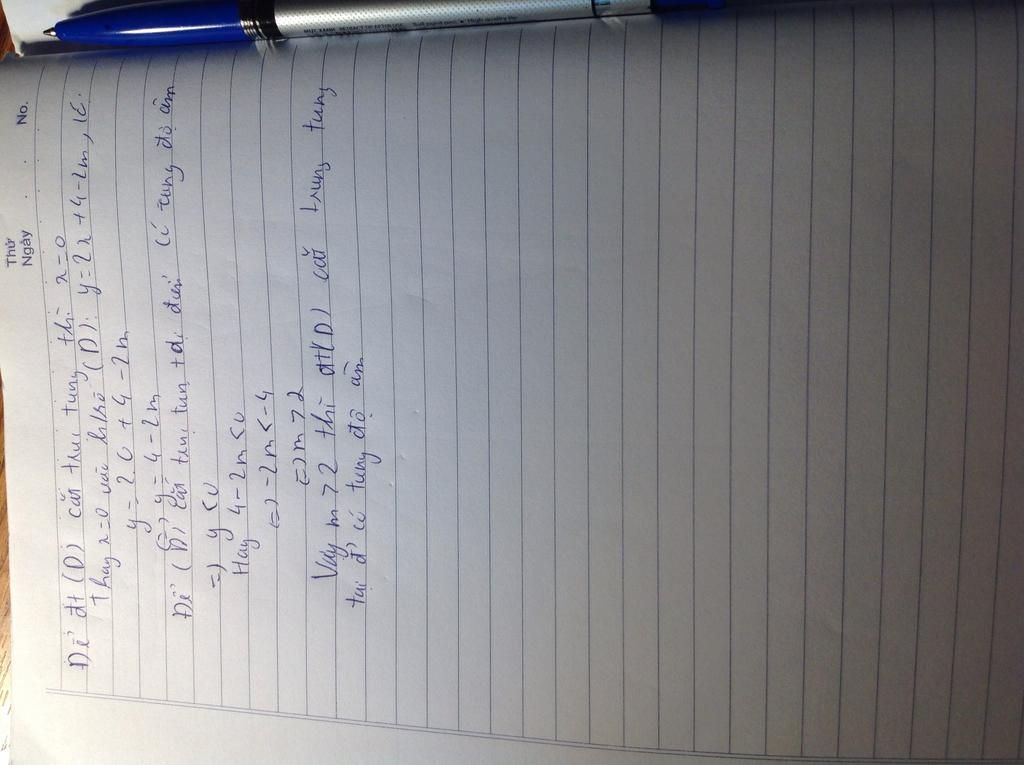 Thứ
Ngày
No.
Để đt (D) cắt trục tung thì x=0
thay x=0 vào hàm số (D): y=2x+4-2m, ta có
y = 2.0 + 4 - 2m
=> y = 4-2m
Để (D) cắt trục tung tại điểm có tung độ âm
=> y<0
Hay 4-2m<0
<=> -2m<-4
=> m>2
Vậy m>2 thì đt (D) cắt trung tung
tại đ' có tung độ âm